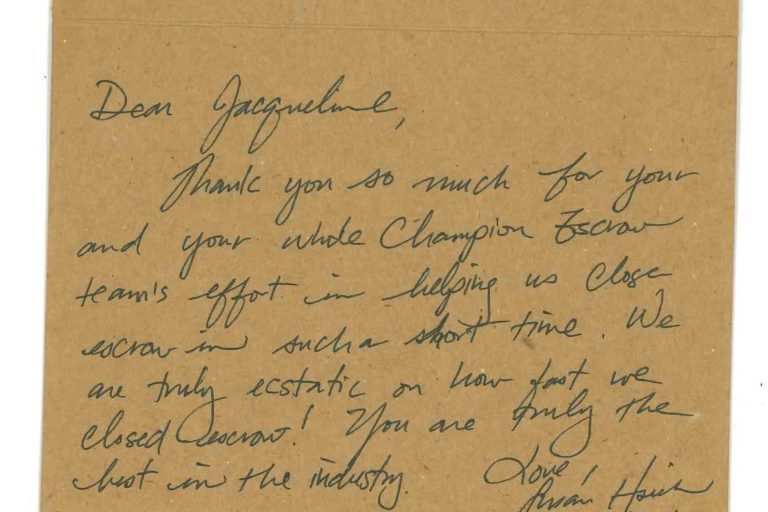 Dear Jacqueline,
Thank you so much for your
and your whole Champion Escrow
team's effort in helping us close
escrow in such a short time. We
are truly ecstatic on how fast we
closed escrow! You are truly the
best in the industry.
Love,
Susan Hsieh